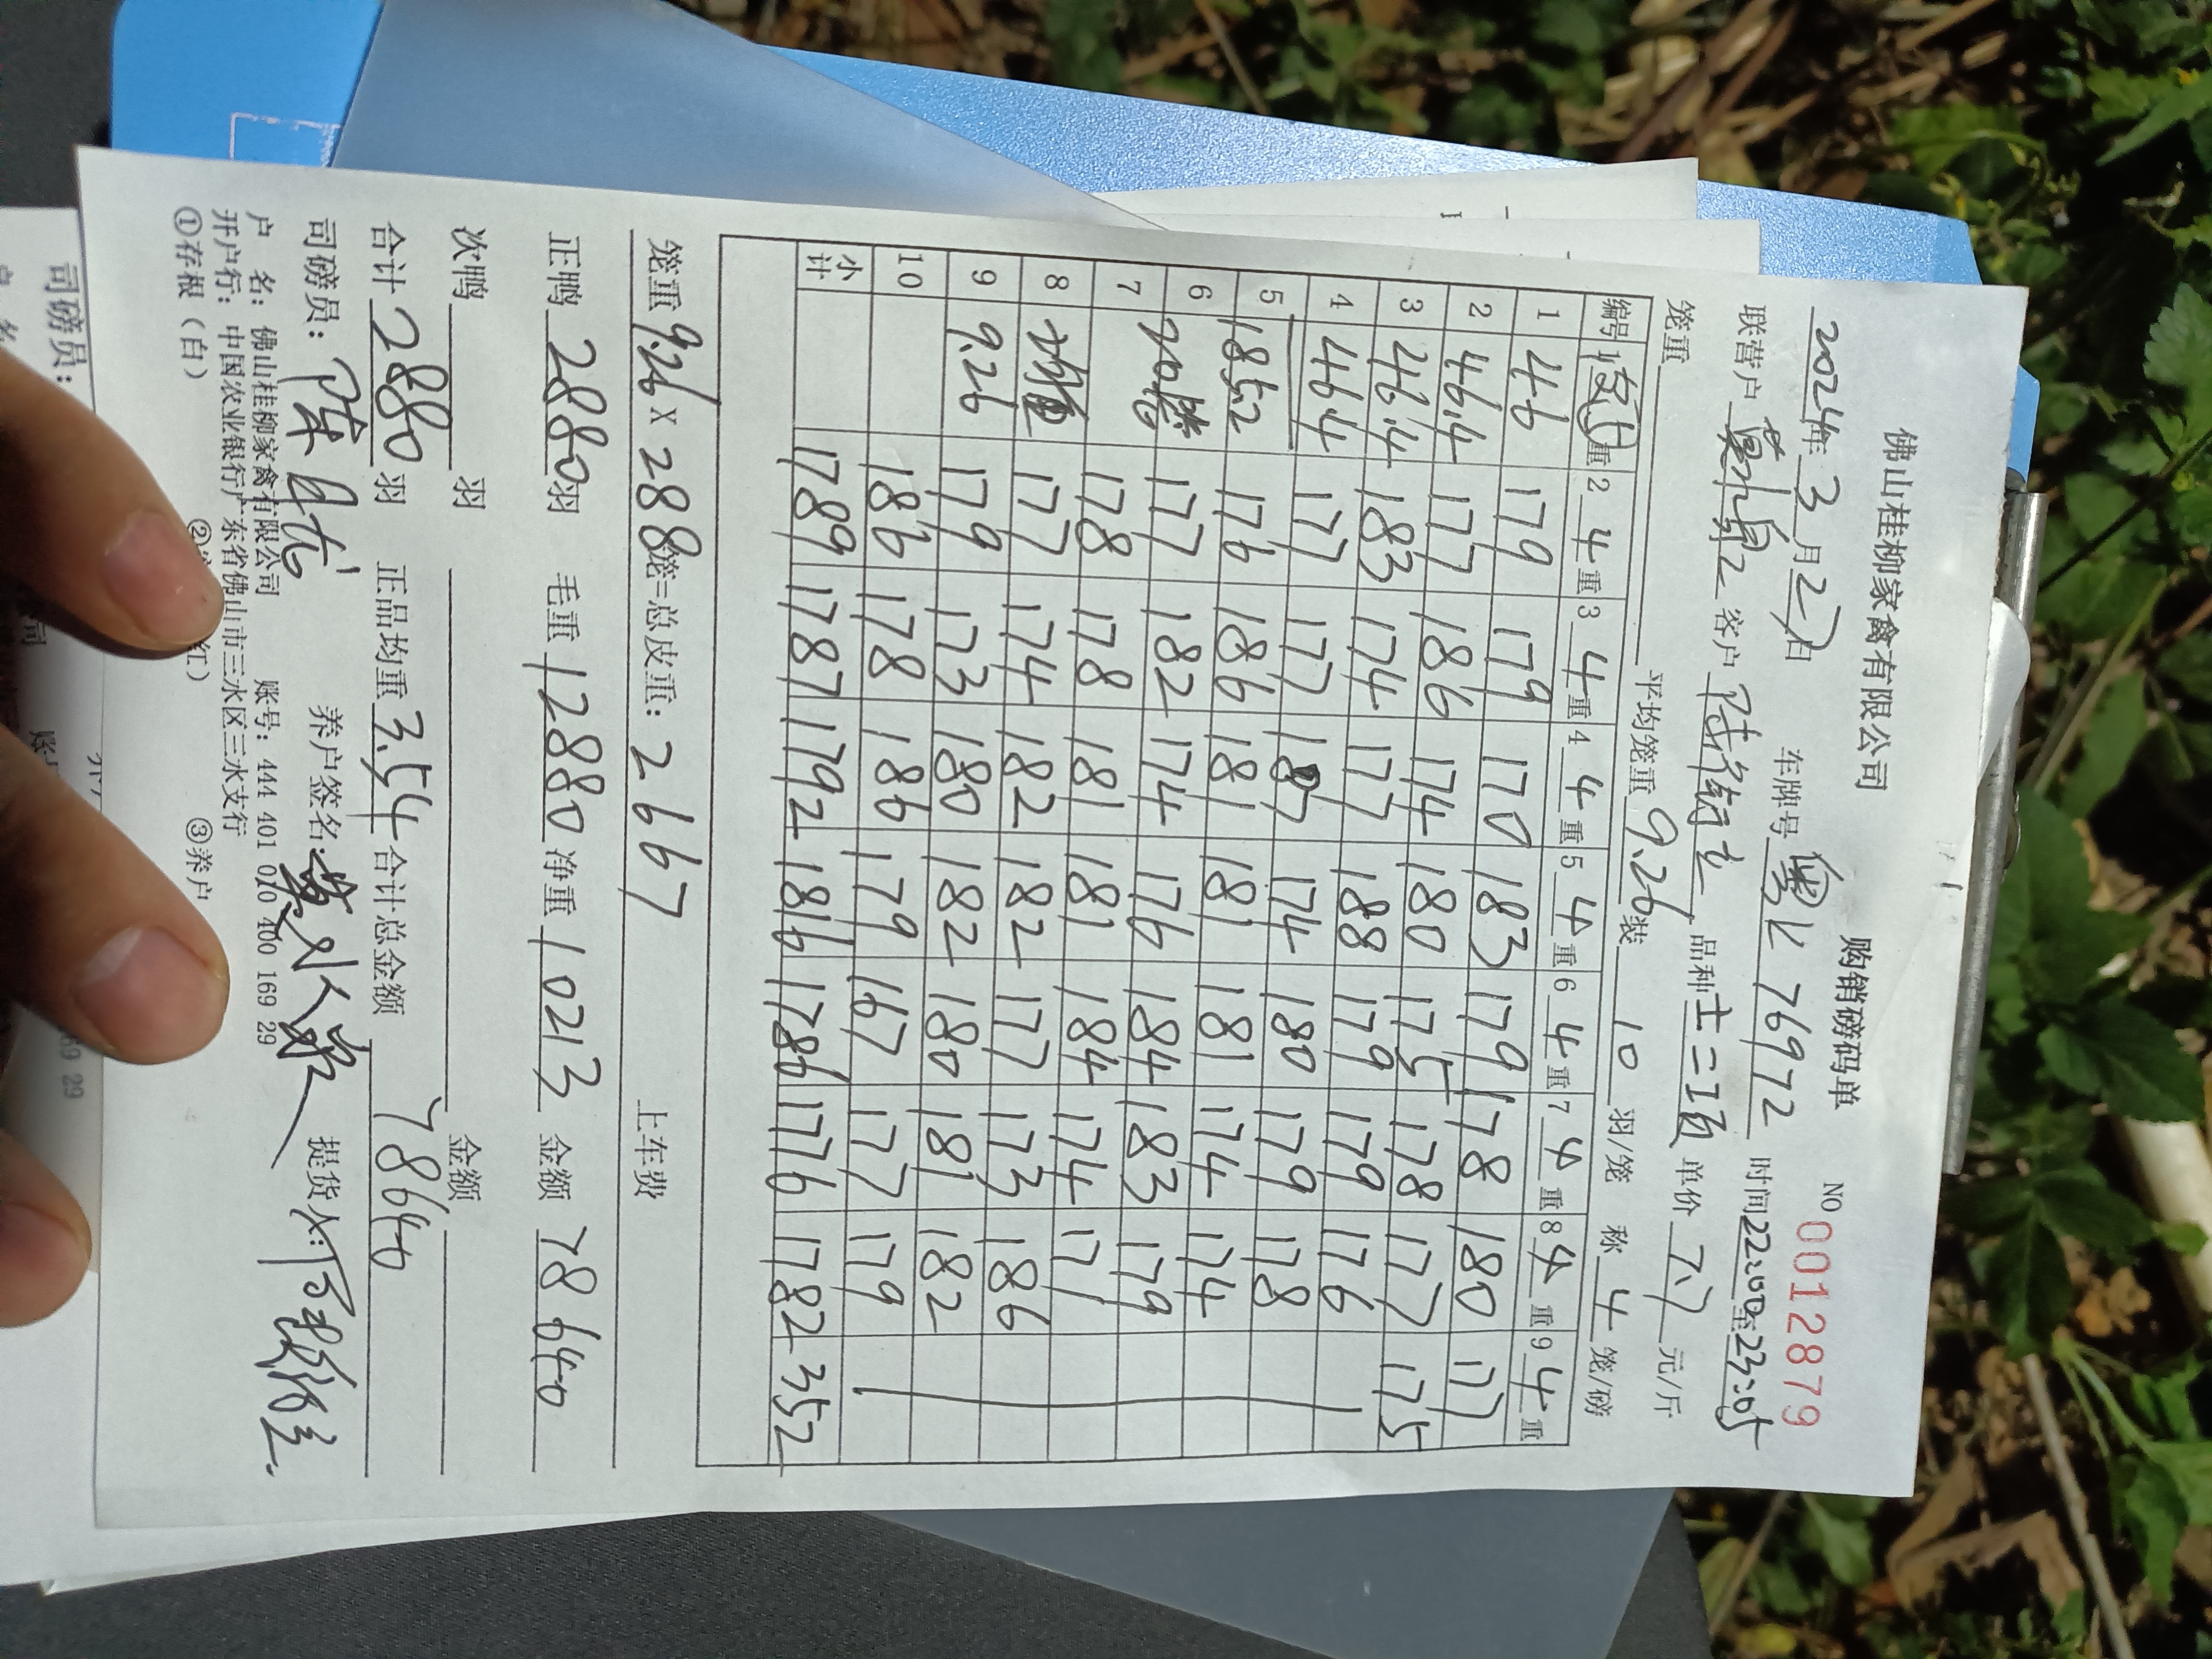 佛山桂柳家禽有限公司 购销磅码单 NO 0012879
2024年3月27日 车牌号 粤L 76972 时间 22:00至23:05
联营户 客户 品种 单价 7.7 元/斤
笼重 平均笼重 9.26 装 10 羽/笼 称 4 笼/磅
编号 1 重 2 4 重 3 4 重 4 4 重 5 4 重 6 4 重 7 4 重 8 4 重 9 4 重
1 46 179 179 170 183 179 178 180 177
2 46.4 177 186 174 180 175 178 177 175
3 46.4 183 174 177 188 179 179 176
4 46.4 177 177 187 174 180 179 178
5 185.2 176 186 181 181 181 174 174
6 20 177 182 174 176 184 183 179
7 178 178 181 181 184 174 171
8 177 174 182 182 177 173 186
9 9.26 179 173 180 182 180 181 182
10 186 178 186 179 167 177 179
小计 1789 1787 1792 1816 1786 1776 1782 352
笼重 9.26 x 288 笼=总皮重: 2667 上车费
正鸭 2880 羽 毛重 12880 净重 10213 金额 78640
次鸭 羽 金额
合计 2880 羽 正品均重 3.54 合计总金额 78640
司磅员: 养户签名: 提货人:
户 名: 佛山桂柳家禽有限公司 账号: 444 401 010 400 169 29
开户行: 中国农业银行广东省佛山市三水区三水支行
①存根(白) ② 红) ③养户
司磅员: